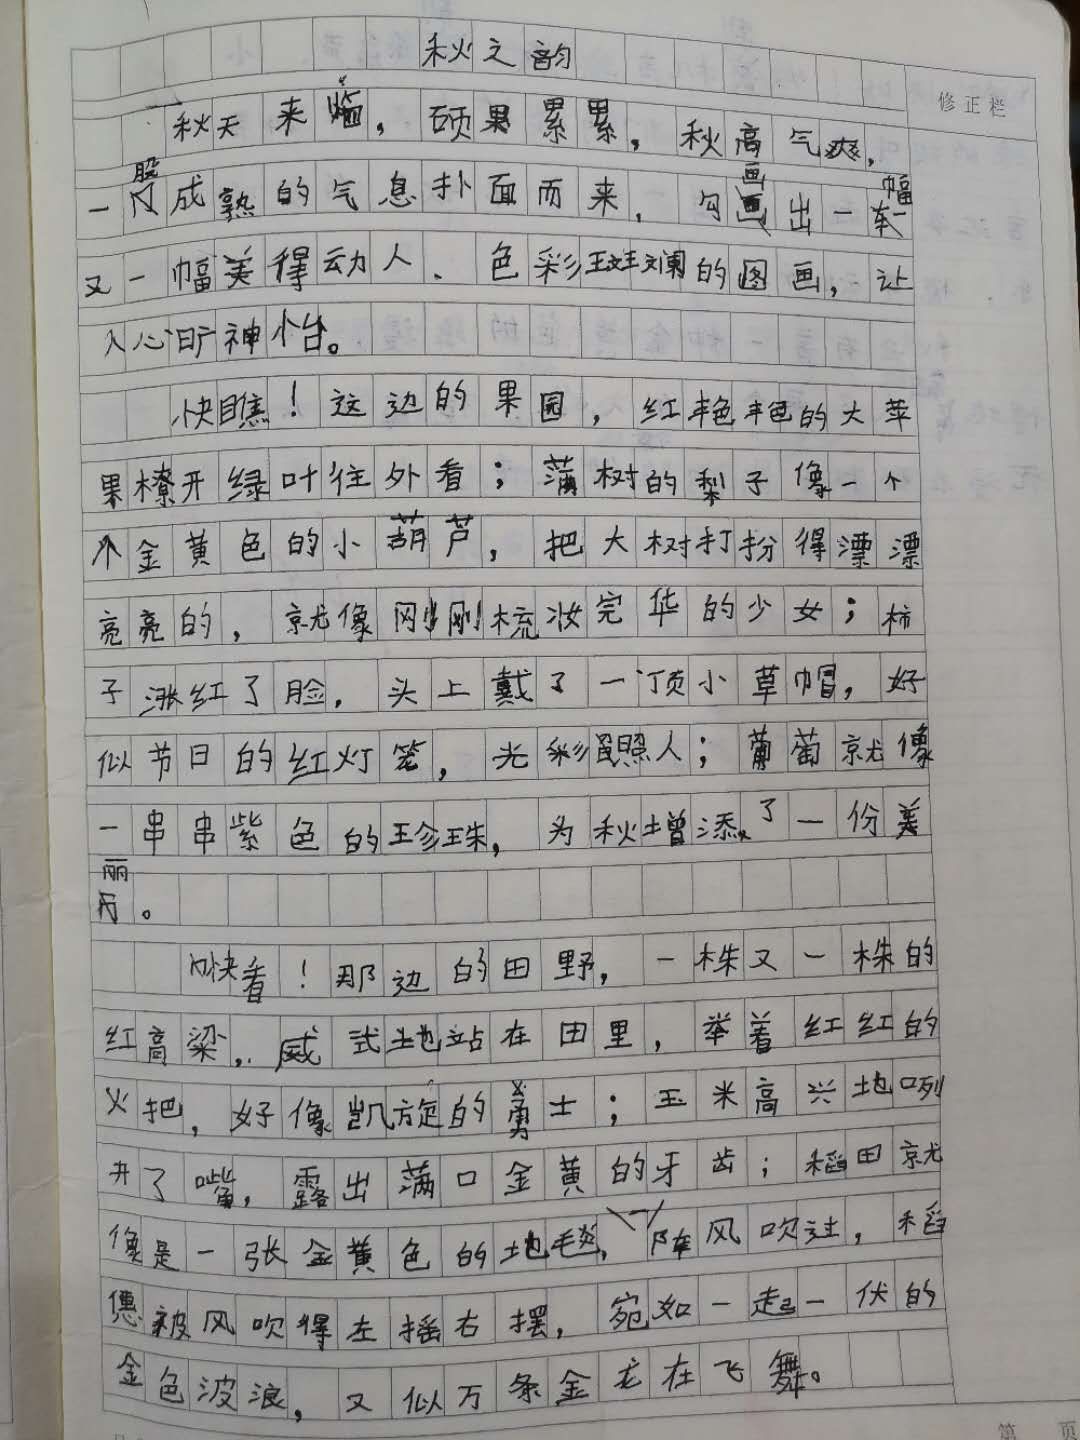 秋之韵
修正栏
秋天来临，硕果累累，秋高气爽，
一股成熟的气息扑面而来，勾画出一幅
又一幅美得动人、色彩斑斓的图画，让
人心旷神怡。
快瞧！这边的果园，红艳艳的大苹
果撩开绿叶往外看；满树的梨子像一个
个金黄色的小葫芦，把大树打扮得漂漂
亮亮的，就像刚刚梳妆完毕的少女；柿
子涨红了脸，头上戴了一顶小草帽，好
似节日的红灯笼，光彩照人；葡萄就像
一串串紫色的珍珠，为秋增添了一份美
丽。
快看！那边的田野，一株又一株的
红高粱，威武地站在田里，举着红红的
火把，好像凯旋的勇士；玉米高兴地咧
开了嘴，露出满口金黄的牙齿；稻田就
像是一张金黄色的地毯，一阵风吹过，稻
穗被风吹得左摇右摆，宛如一起一伏的
金色波浪，又似万条金龙在飞舞。
第 页